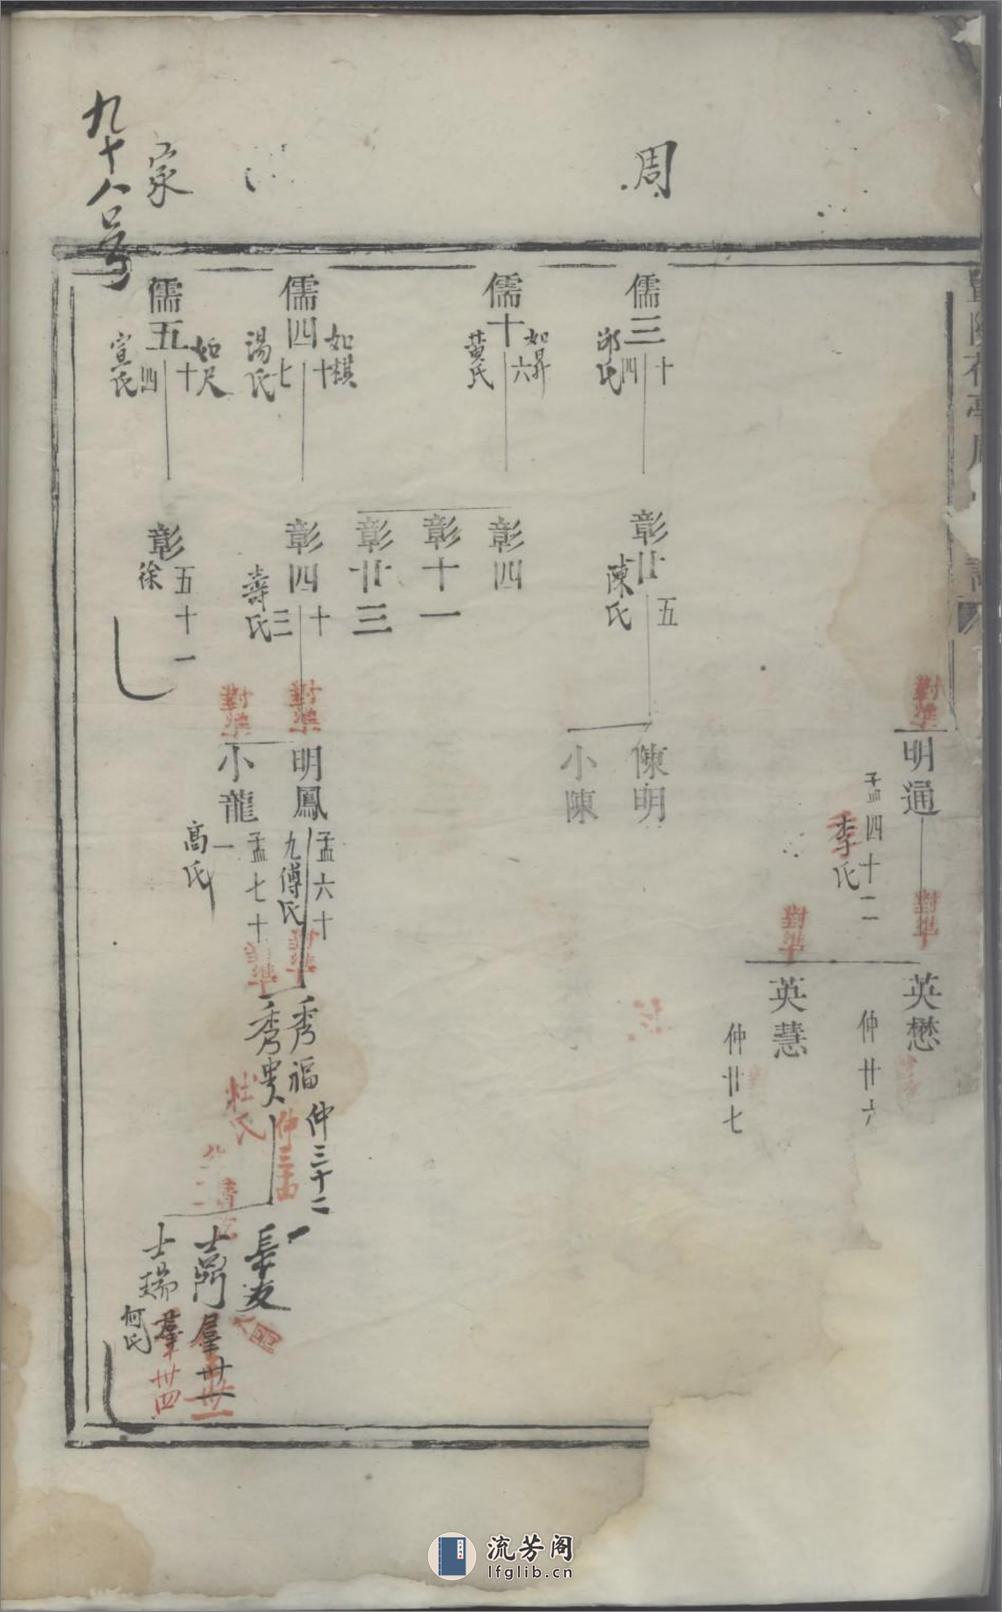 周
家
九十八号
儒三十四
邱氏
儒十六
如昇
黄氏
儒四十七
如棋
湯氏
儒五十四
如尺
宣氏
彰廿五
陳氏
彰四
彰十一
彰廿三
彰四十三
壽氏
彰五十一
徐
對準
明通
孟四十二
李氏
陳明
小陳
對準
明鳳
孟六十九
傅氏
對準
小龍
孟七十一
高氏
對準
英懋
仲廿六
對準
英慧
仲廿七
對準
秀福
仲三十二
對準
秀貴
仲三
杜氏
長友
士
羣卅一
士瑞
羣卅四
何氏
流芳阁
lfglib.cn